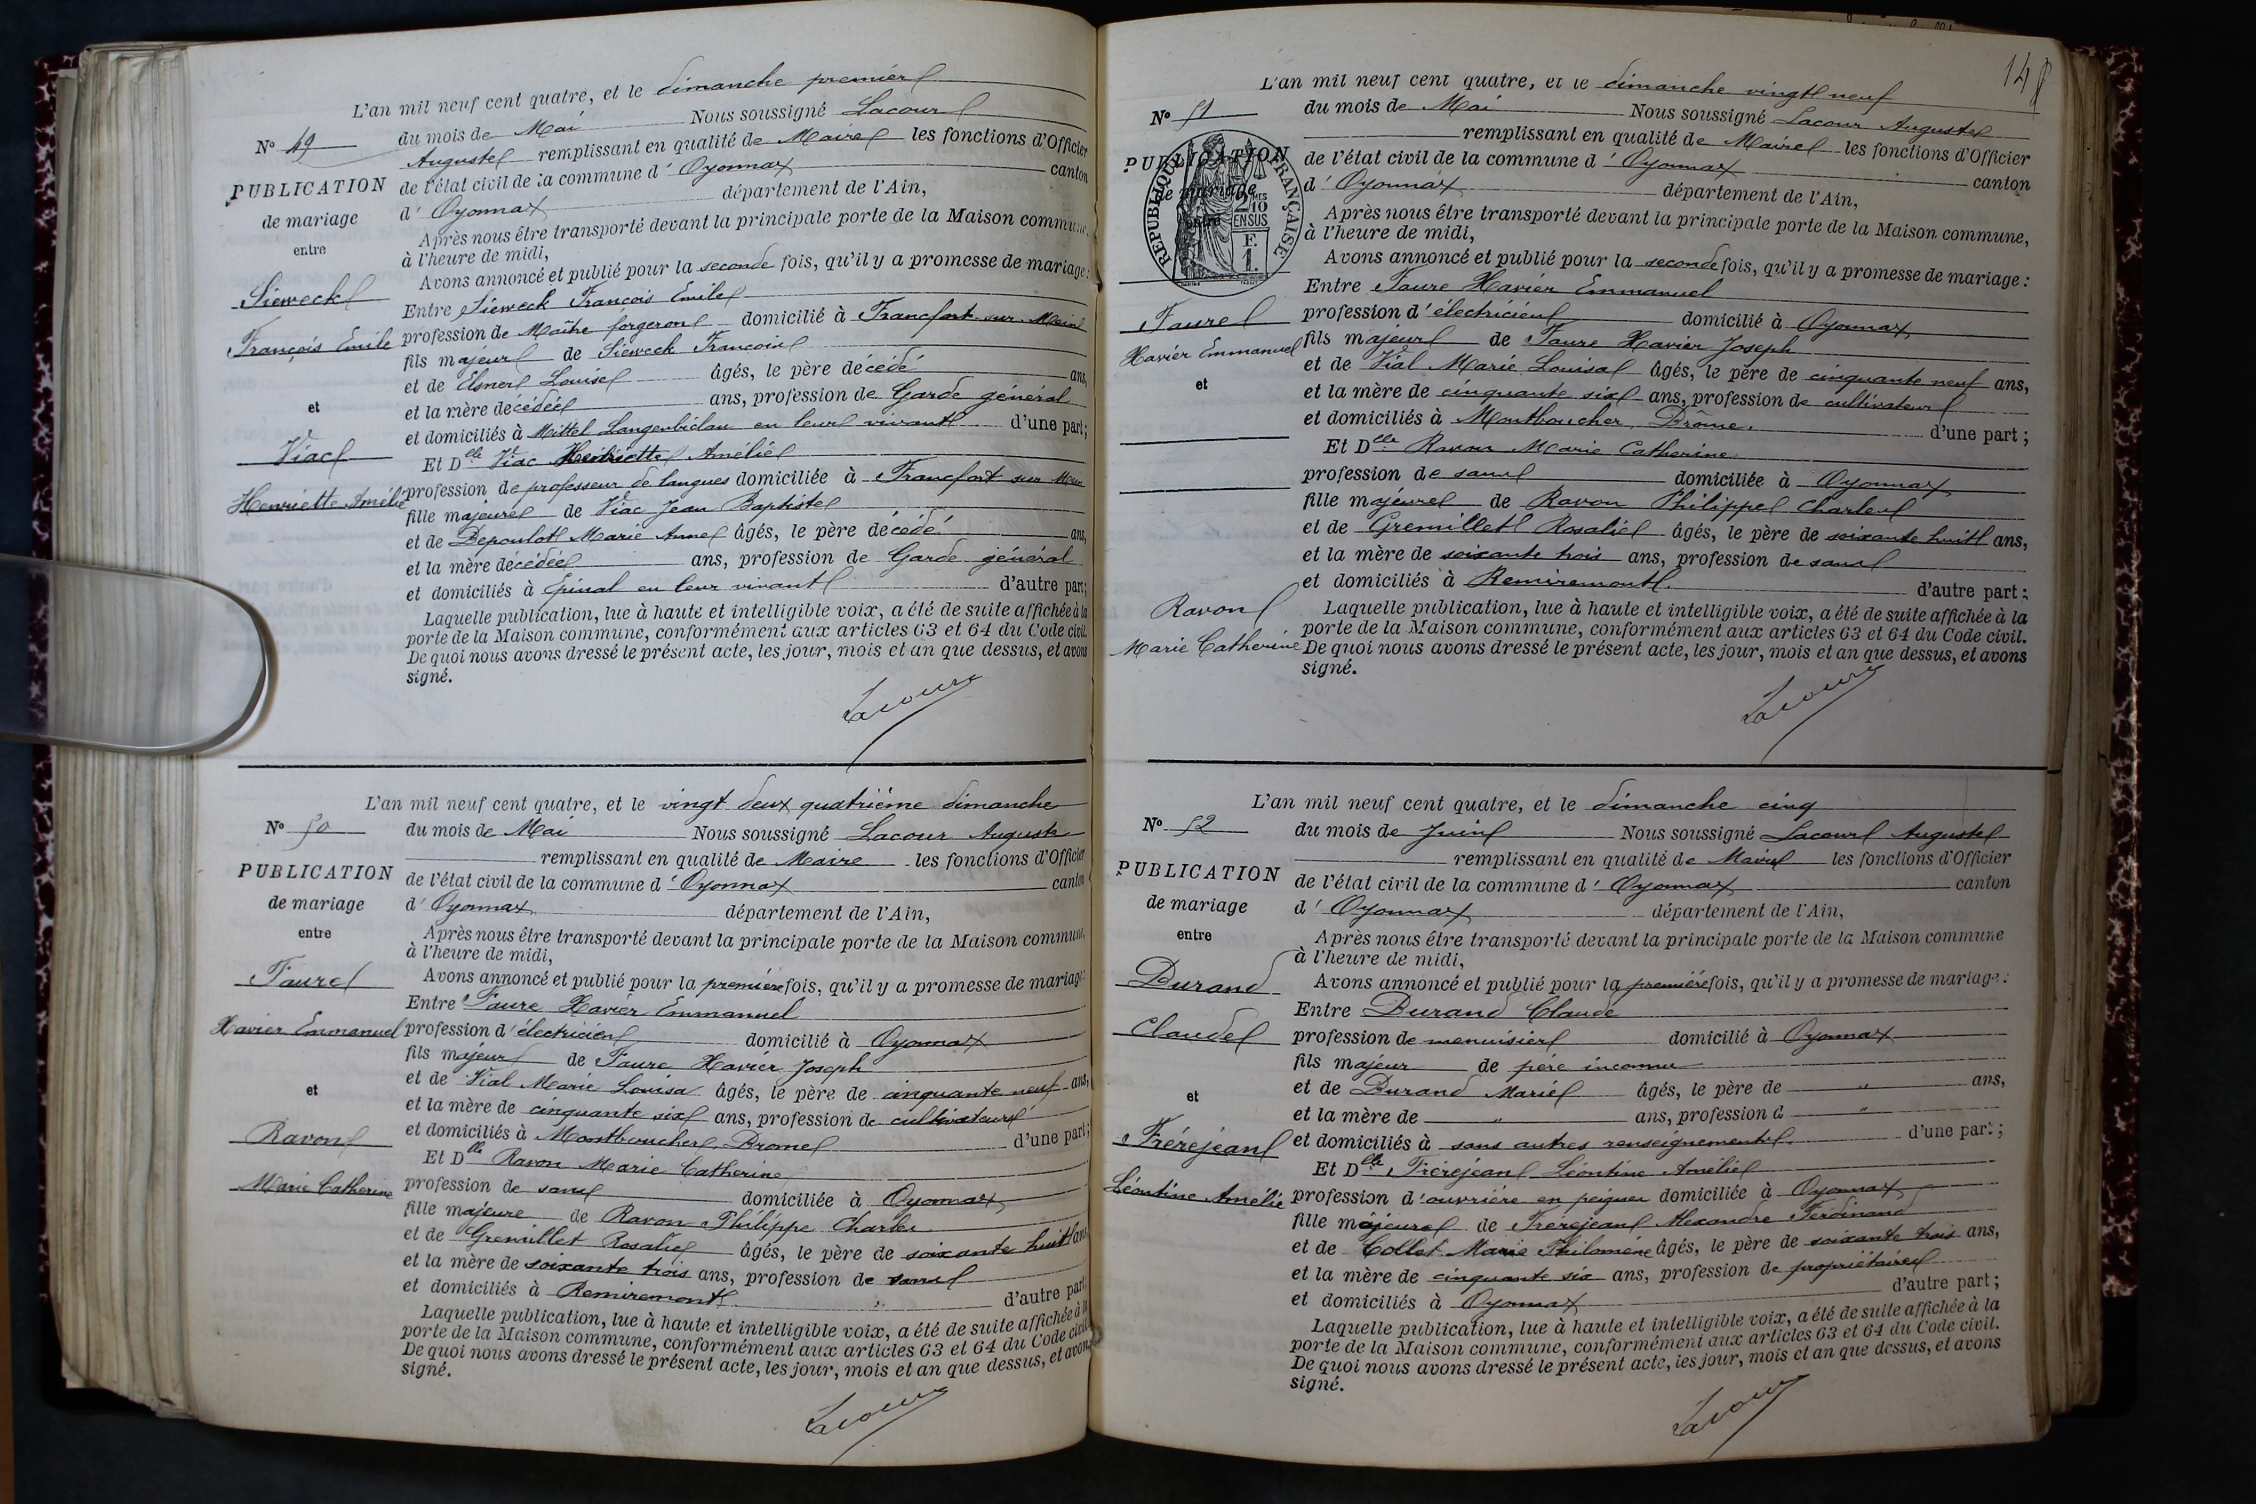 L'an mil neuf cent quatre, et le dimanche premier
Nº 49
du mois de Mai Nous soussigné Lacour
Auguste remplissant en qualité de Maire les fonctions d'Officier
PUBLICATION
de mariage
entre
de l'état civil de la commune d' Oyonnax canton
d' Oyonnax département de l'Ain,
Après nous être transporté devant la principale porte de la Maison commune,
à l'heure de midi,
Avons annoncé et publié pour la seconde fois, qu'il y a promesse de mariage:
Sieweck
François Emile
et
Viac
Henriette Amélie
Entre Sieweck François Emile
profession de Maître forgeron domicilié à Francfort sur Mein
fils majeur de Sieweck François
et de Louise âgés, le père décédé ans,
et la mère décédée ans, profession de Garde général
et domiciliés à Mittel en leur vivant d'une part;
Et Delle Viac Henriette Amélie
profession de professeur de langues domiciliée à Francfort sur Mein
fille majeure de Viac Jean Baptiste
et de Depoulot Marie Anne âgés, le père décédé ans,
et la mère décédée ans, profession de Garde général
et domiciliés à Epinal en leur vivant d'autre part;
Laquelle publication, lue à haute et intelligible voix, a été de suite affichée à la
porte de la Maison commune, conformément aux articles 63 et 64 du Code civil.
De quoi nous avons dressé le présent acte, les jour, mois et an que dessus, et avons
signé.
Lacour
L'an mil neuf cent quatre, et le vingt deux quatrième dimanche
Nº 50
du mois de Mai Nous soussigné Lacour Auguste
remplissant en qualité de Maire les fonctions d'Officier
PUBLICATION
de mariage
entre
de l'état civil de la commune d' Oyonnax canton
d' Oyonnax département de l'Ain,
Après nous être transporté devant la principale porte de la Maison commune,
à l'heure de midi,
Avons annoncé et publié pour la première fois, qu'il y a promesse de mariage:
Faure
Xavier Emmanuel
et
Ravon
Marie Catherine
Entre Faure Xavier Emmanuel
profession d'électricien domicilié à Oyonnax
fils majeur de Faure Xavier Joseph
et de Vial Marie Louisa âgés, le père de cinquante neuf ans,
et la mère de cinquante six ans, profession de cultivateurs
et domiciliés à Montboucher Drome d'une part;
Et Dlle Ravon Marie Catherine
profession de sans domiciliée à Oyonnax
fille majeure de Ravon Philippe Charles
et de Gremillet Rosalie âgés, le père de soixante huit ans,
et la mère de soixante trois ans, profession de sans
et domiciliés à Remiremont " d'autre part;
Laquelle publication, lue à haute et intelligible voix, a été de suite affichée à la
porte de la Maison commune, conformément aux articles 63 et 64 du Code civil.
De quoi nous avons dressé le présent acte, les jour, mois et an que dessus, et avons
signé.
Lacour
L'an mil neuf cent quatre, et le dimanche vingt neuf
Nº 51
du mois de Mai Nous soussigné Lacour Auguste
remplissant en qualité de Maire les fonctions d'Officier
PUBLICATION
de mariage
entre
RÉPUBLIQUE FRANÇAISE
2 MES
10
EN SUS
F.
1.
de l'état civil de la commune d' Oyonnax canton
d' Oyonnax département de l'Ain,
Après nous être transporté devant la principale porte de la Maison commune,
à l'heure de midi,
Avons annoncé et publié pour la seconde fois, qu'il y a promesse de mariage:
Faure
Xavier Emmanuel
et
Ravon
Marie Catherine
Entre Faure Xavier Emmanuel
profession d'électricien domicilié à Oyonnax
fils majeur de Faure Xavier Joseph
et de Vial Marie Louisa âgés, le père de cinquante neuf ans,
et la mère de cinquante six ans, profession de cultivateurs
et domiciliés à Montboucher, Drôme. d'une part;
Et Delle Ravon Marie Catherine
profession de sans domiciliée à Oyonnax
fille majeure de Ravon Philippe Charles
et de Gremillet Rosalie âgés, le père de soixante huit ans,
et la mère de soixante trois ans, profession de sans
et domiciliés à Remiremont d'autre part;
Laquelle publication, lue à haute et intelligible voix, a été de suite affichée à la
porte de la Maison commune, conformément aux articles 63 et 64 du Code civil.
De quoi nous avons dressé le présent acte, les jour, mois et an que dessus, et avons
signé.
Lacour
L'an mil neuf cent quatre, et le dimanche cinq
Nº 52
du mois de Juin Nous soussigné Lacour Auguste
remplissant en qualité de Maire les fonctions d'Officier
PUBLICATION
de mariage
entre
de l'état civil de la commune d' Oyonnax canton
d' Oyonnax département de l'Ain,
Après nous être transporté devant la principale porte de la Maison commune
à l'heure de midi,
Avons annoncé et publié pour la première fois, qu'il y a promesse de mariage:
Durand
Claude
et
Frérejean
Léontine Amélie
Entre Durand Claude
profession de menuisier domicilié à Oyonnax
fils majeur de père inconnu
et de Durand Marie âgés, le père de " ans,
et la mère de " ans, profession d "
et domiciliés à sans autres renseignements. d'une part;
Et Delle Frérejean Léontine Amélie
profession d'ouvrière en peignes domiciliée à Oyonnax
fille majeure de Frérejean Alexandre Ferdinand
et de Collet Marie Philomène âgés, le père de soixante trois ans,
et la mère de cinquante six ans, profession de propriétaires
et domiciliés à Oyonnax d'autre part;
Laquelle publication, lue à haute et intelligible voix, a été de suite affichée à la
porte de la Maison commune, conformément aux articles 63 et 64 du Code civil.
De quoi nous avons dressé le présent acte, les jour, mois et an que dessus, et avons
signé.
Lacour